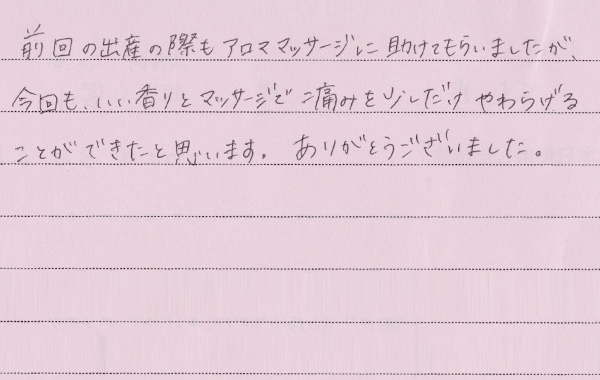 前回の出産の際もアロママッサージに助けてもらいましたが、
今回も、いい香りとマッサージで痛みを少しだけやわらげる
ことができたと思います。ありがとうございました。